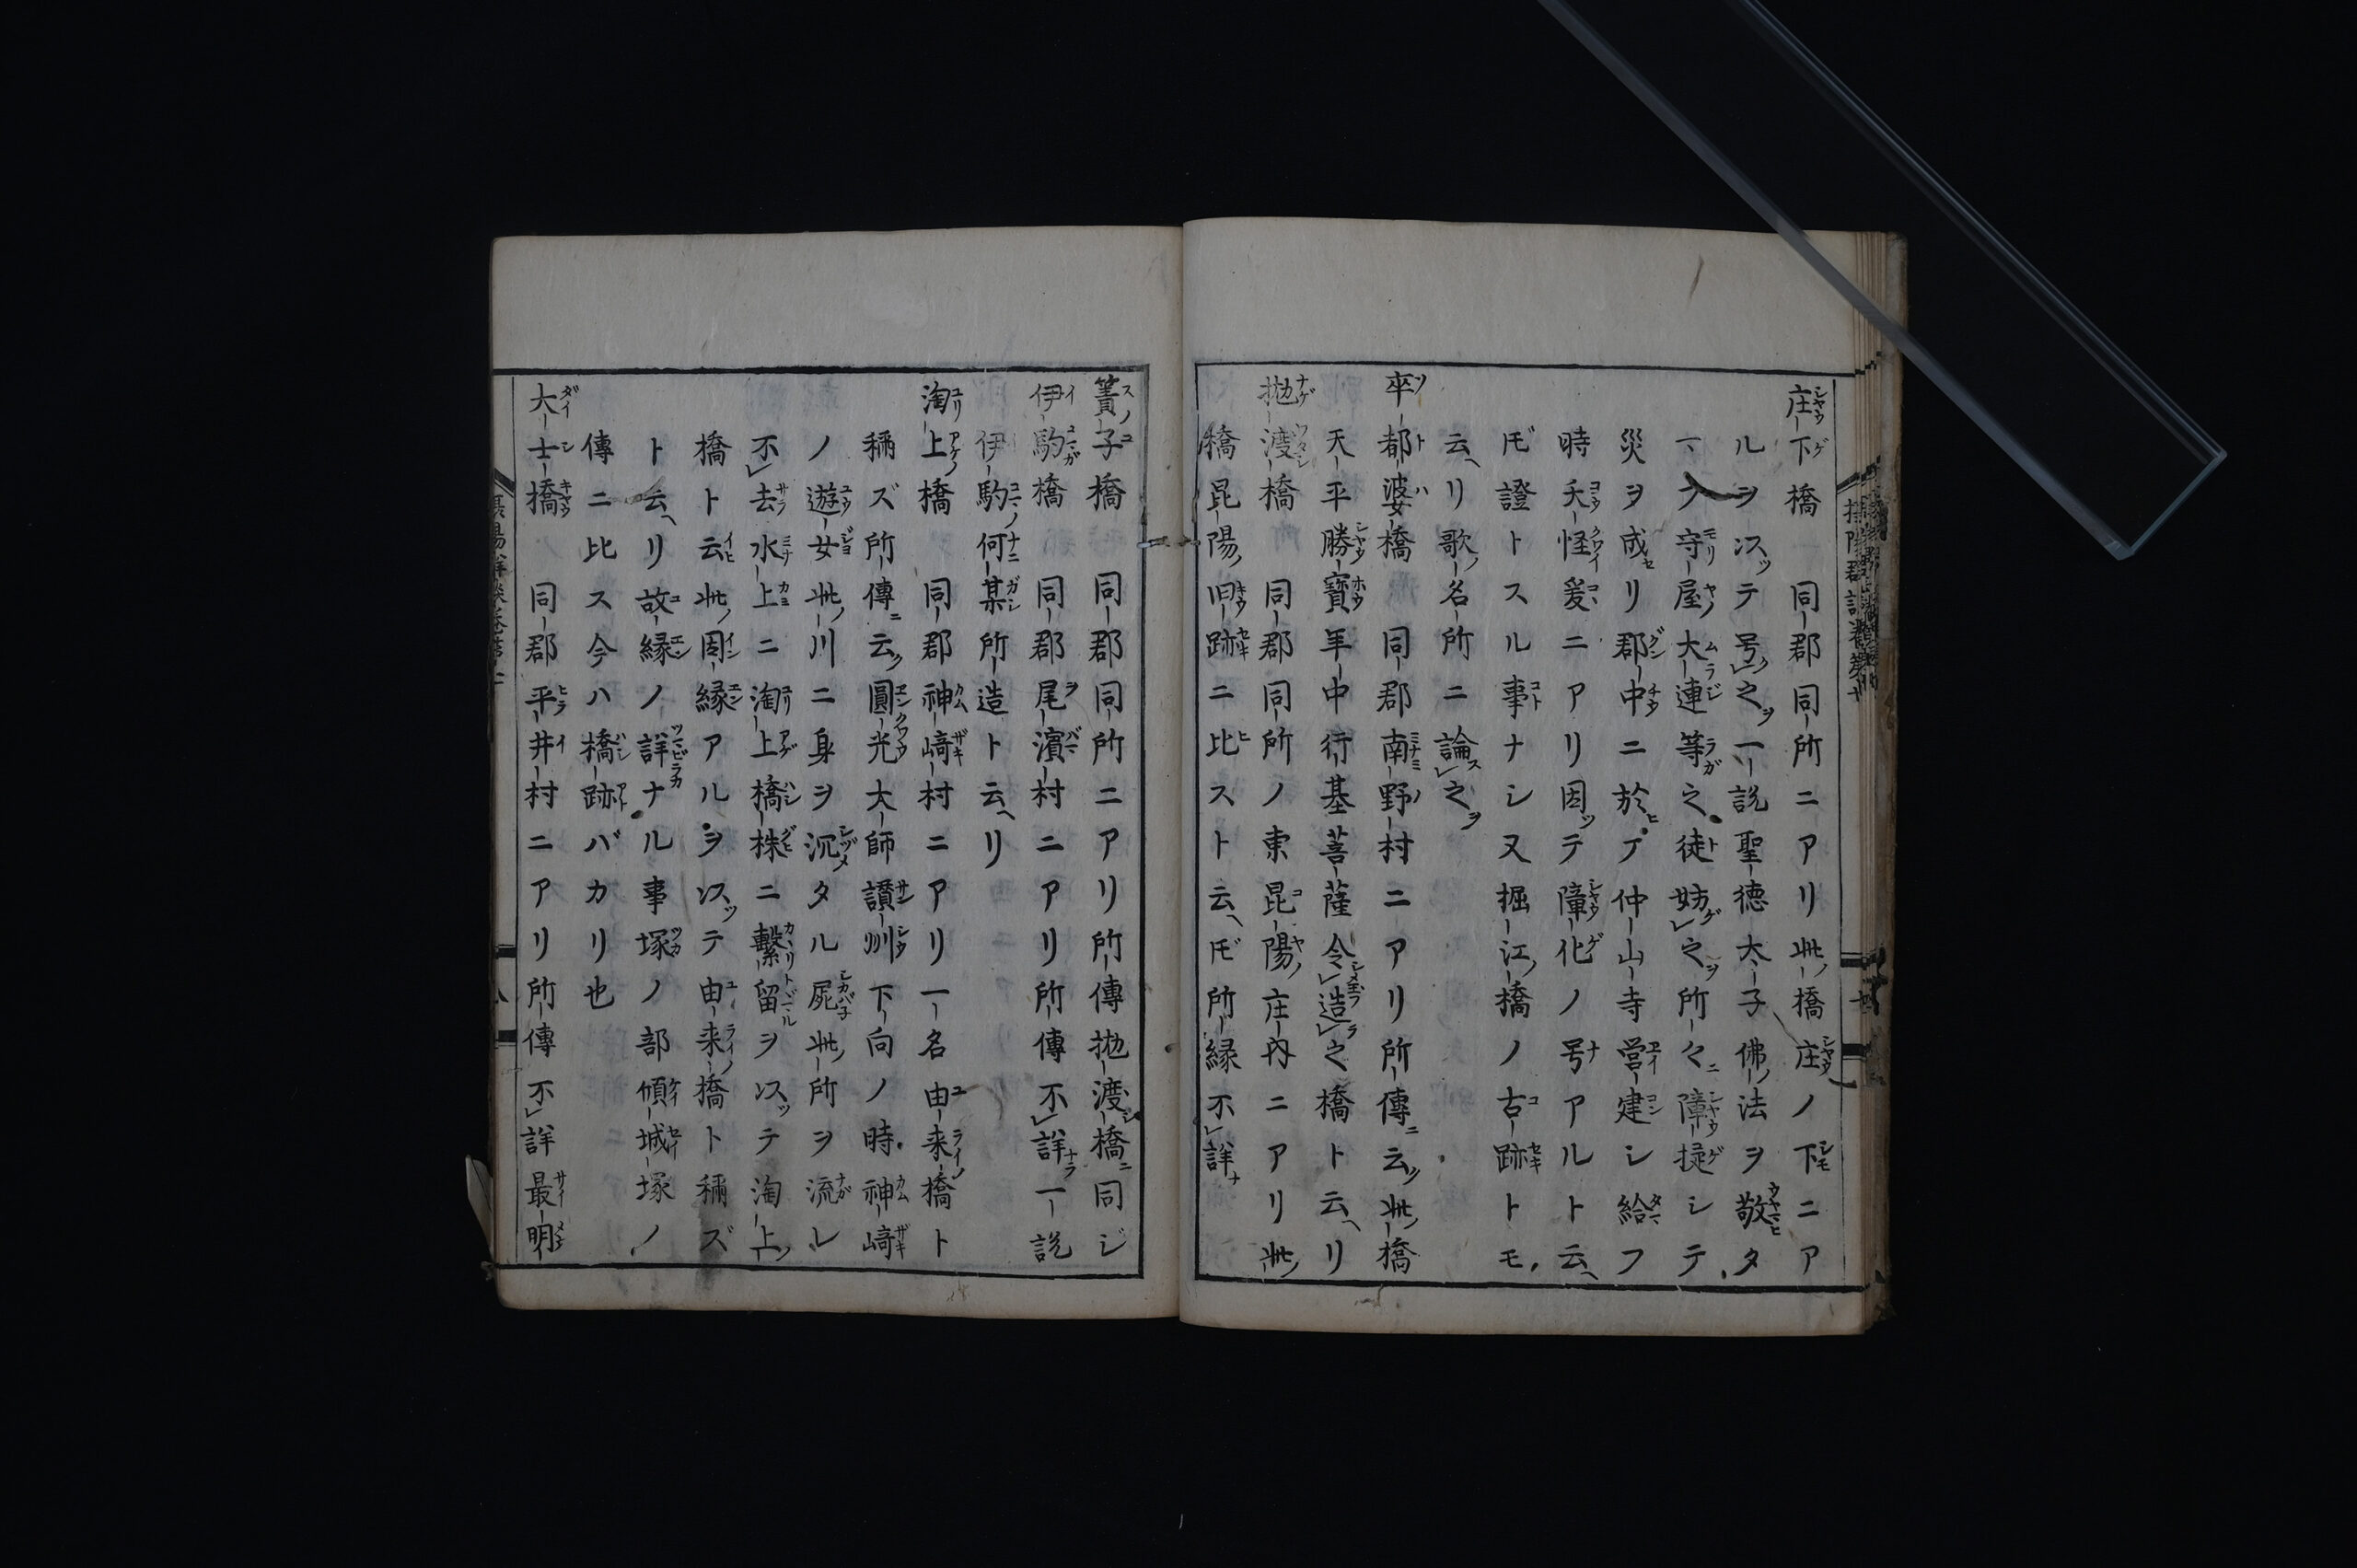 庄下橋 同郡同所ニアリ此橋庄ノ下ニア
ルヲ以テ号之一説聖徳太子佛法ヲ敬タ
フ守屋大連等之徒妨之所々障㝵シテ
災ヲ成リ郡中ニ於テ仲山寺営建シ給フ
時夭怪爰ニアリ因テ障化ノ号アルト云
ドモ證トスル事ナシ又掘江橋ノ古跡トモ
云リ歌名所ニ論之
卒都婆橋 同郡南野村ニアリ所傳云此橋
天平勝寳年中行基菩薩令造之橋ト云リ
抛渡橋 同郡同所ノ東昆陽庄内ニアリ此
橋昆陽旧跡ニ比スト云ドモ所縁不詳
簀子橋 同郡同所ニアリ所傳抛渡橋ニ同ジ
伊駒橋 同郡尾濵村ニアリ所傳不詳一説
伊駒何某所造ト云リ
淘上橋 同郡神﨑村ニアリ一名由来橋ト
稱ズ所傳云圓光大師讃州下向ノ時神﨑
ノ遊女此川ニ身ヲ沉タル屍此所ヲ流レ
不去水上ニ淘上橋株ニ繫留ヲ以テ淘上
橋ト云此因縁アルヲ以テ由来橋ト稱ズ
ト云リ故縁ノ詳ナル事塚ノ部傾城塚ノ
傳ニ比ス今ハ橋跡バカリ也
大士橋 同郡平井村ニアリ所傳不詳最明